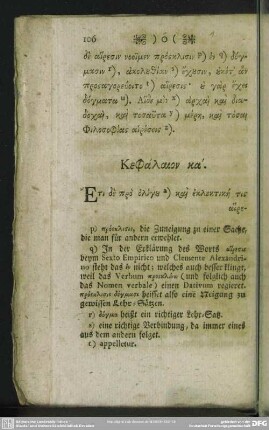 106 ※ ) o ( ※
δὲ αἵρεσιν νοοῖμεν πρόσκλισιν p) ἐν q) δόγ-
μασιν r), ἀκολουθίαν s) ἔχουσιν,
προσαγορεύοιτο t) αἵρεσις· ἡ γὰρ ἔχει
δόγματα u). x) ἀρχαὶ καὶ δια-
δοχαὶ, καὶ τοσαῦτα y) μέρη, καὶ τόσαι
Φιλοσοφίας αἱρέσεις z).
Κεφάλαιον κα΄.
Ἔτι δὲ πρὸ ὀλίγου a) καὶ ἐκλεκτική τις
αἵρε-
p) πρόσκλισις, die Zuneigung zu einer Sache,
die man für andern erwehlet.
q) In der Erklärung des Worts αἵρεσις
beym Sexto Empirico und Clemente Alexandri-
no steht das ἐν nicht; welches auch besser klingt,
weil das Verbum προσκλίνω (und folglich auch
das Nomen verbale) einen Dativum regieret.
πρόσκλισις δόγμασι heisset also eine Neigung zu
gewissen Lehr-Sätzen.
r) δόγμα heißt ein richtiger Lehr-Satz.
s) eine richtige Verbindung, da immer eines
aus dem andern folget.
t) appelletur.